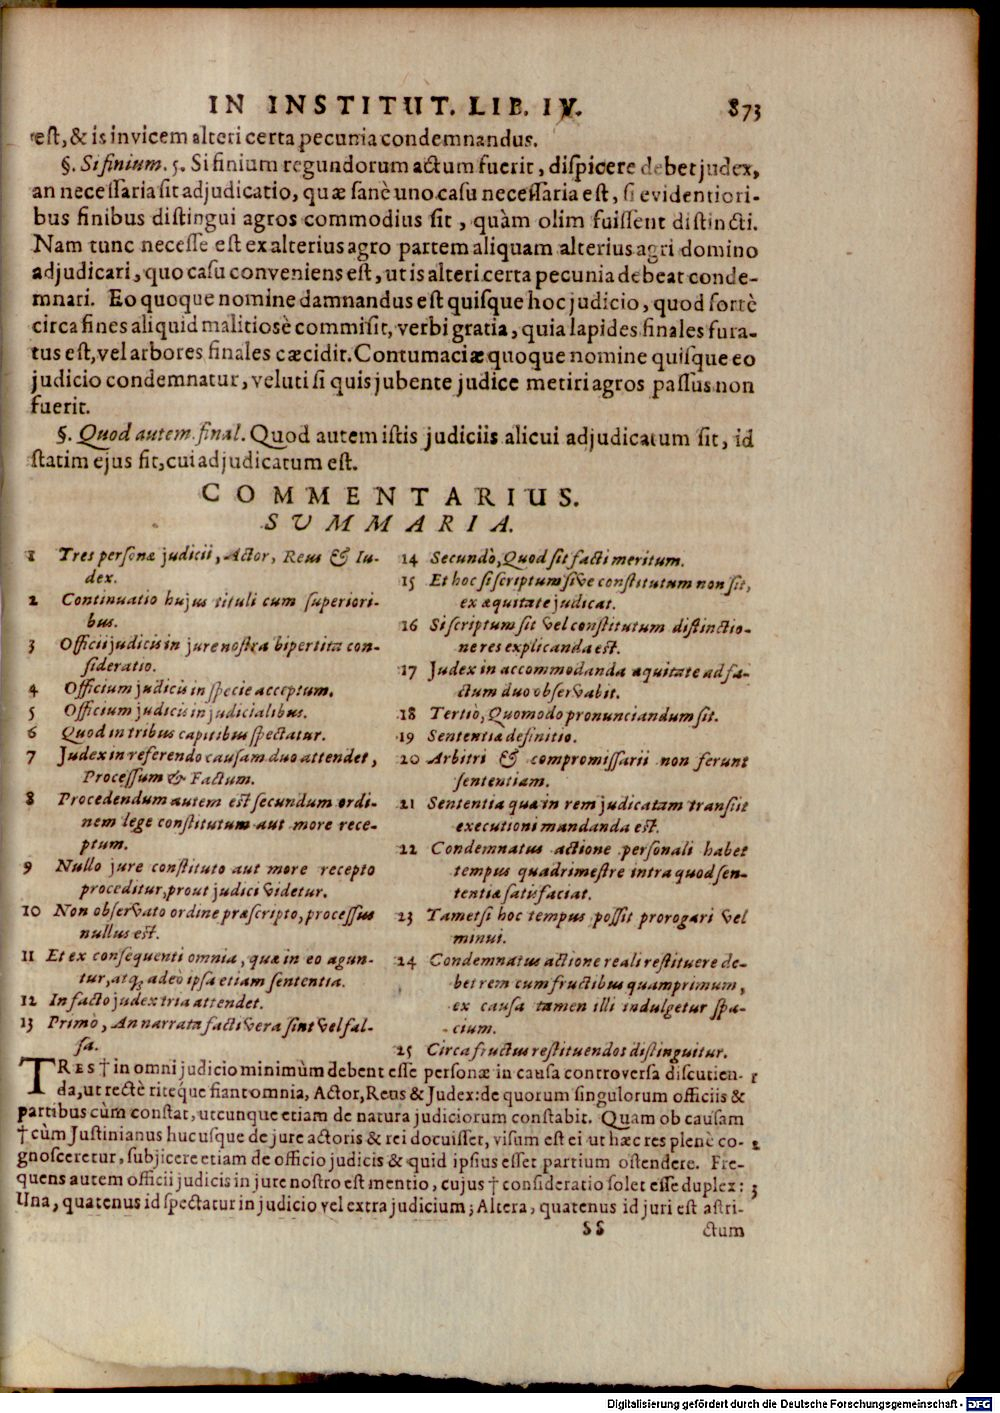 IN INSTITUT. LIB. IV. 873
est, & is invicem alteri certa pecunia condemnandus.
§. Si finium. 5. Si finium regundorum actum fuerit, dispicere debet judex,
an necessaria sit adjudicatio, quæ sanè uno casu necessaria est, si evidentiori-
bus finibus distingui agros commodius sit, quàm olim fuissent distincti.
Nam tunc necesse est ex alterius agro partem aliquam alterius agri domino
adjudicari, quo casu conveniens est, ut is alteri certa pecunia debeat conde-
mnari. Eo quoque nomine damnandus est quisque hoc judicio, quod fortè
circa fines aliquid malitiosè commisit, verbi gratia, quia lapides finales fura-
tus est, vel arbores finales cæcidit. Contumaciæ quoque nomine quisque eo
judicio condemnatur, veluti si quis jubente judice metiri agros passus non
fuerit.
§. Quod autem. final. Quod autem istis judiciis alicui adjudicatum sit, id
statim ejus fit, cui adjudicatum est.
COMMENTARIUS.
SUMMARIA.
1 Tres personæ judicii, Actor, Reus & Iu-
dex.
2 Continuatio hujus tituli cum superiori-
bus.
3 Officii judicis in jure nostra bipertita con-
sideratio.
4 Officium judicis in specie acceptum.
5 Officium judicis in judicialibus.
6 Quod in tribus capitibus spectatur.
7 Judex in referendo causam duo attendet,
Processum & Factum.
8 Procedendum autem est secundum ordi-
nem lege constitutum aut more rece-
ptum.
9 Nullo jure constituto aut more recepto
proceditur, prout judici videtur.
10 Non observato ordine præscripto, processus
nullus est.
11 Et ex consequenti omnia, quæ in eo agun-
tur, atq; adeò ipsa etiam sententia.
12 In facto judex tria attendet.
13 Primò, An narrata facti vera sint vel fal-
sa.
14 Secundò, Quod sit facti meritum.
15 Et hoc si scriptum sive constitutum non sit,
ex æquitate judicat.
16 Si scriptum sit vel constitutum distinctio-
ne res explicanda est.
17 Judex in accommodanda æquitate ad fa-
ctum duo observabit.
18 Tertiò, Quomodo pronunciandum sit.
19 Sententiæ definitio.
20 Arbitri & compromissarii non ferunt
sententiam.
21 Sententia quæ in rem judicatam transiit
executioni mandanda est.
22 Condemnatus actione personali habet
tempus quadrimestre intra quod sen-
tentiæ satisfaciat.
23 Tametsi hoc tempus possit prorogari vel
minui.
24 Condemnatus actione reali restituere de-
bet rem cum fructibus quamprimum,
ex causa tamen illi indulgetur spa-
cium.
25 Circa fructus restituendos distinguitur.
TRES † in omni judicio minimùm debent esse personæ in causa controversa discutien- 1
da, ut rectè ritéque fiant omnia, Actor, Reus & Judex: de quorum singulorum officiis &
partibus cùm constat, utcunque etiam de natura judiciorum constabit. Quam ob causam
† cùm Justinianus hucusque de jure actoris & rei docuisset, visum est ei ut hæc res plenè co- 2
gnosceretur, subjicere etiam de officio judicis & quid ipsius esset partium ostendere. Fre-
quens autem officii judicis in jure nostro est mentio, cujus † consideratio solet esse duplex: 3
Una, quatenus id spectatur in judicio vel extra judicium; Altera, quatenus id juri est astri-
SS ctum
Digitalisierung gefördert durch die Deutsche Forschungsgemeinschaft - DFG